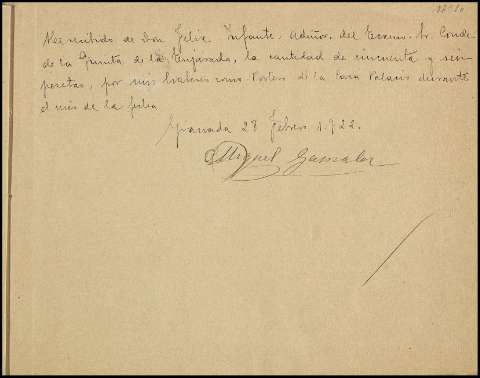 He recibido de Don Felix Infante, Admor. del Excmo. Sr. Conde
de la Quinta de la Enjarada, la cantidad de cincuenta y seis
pesetas, por mis haberes como Portero de la Casa Palacio durante
el mes de la fecha
Granada 28 Febrero 1922.
Miguel Gonzalez